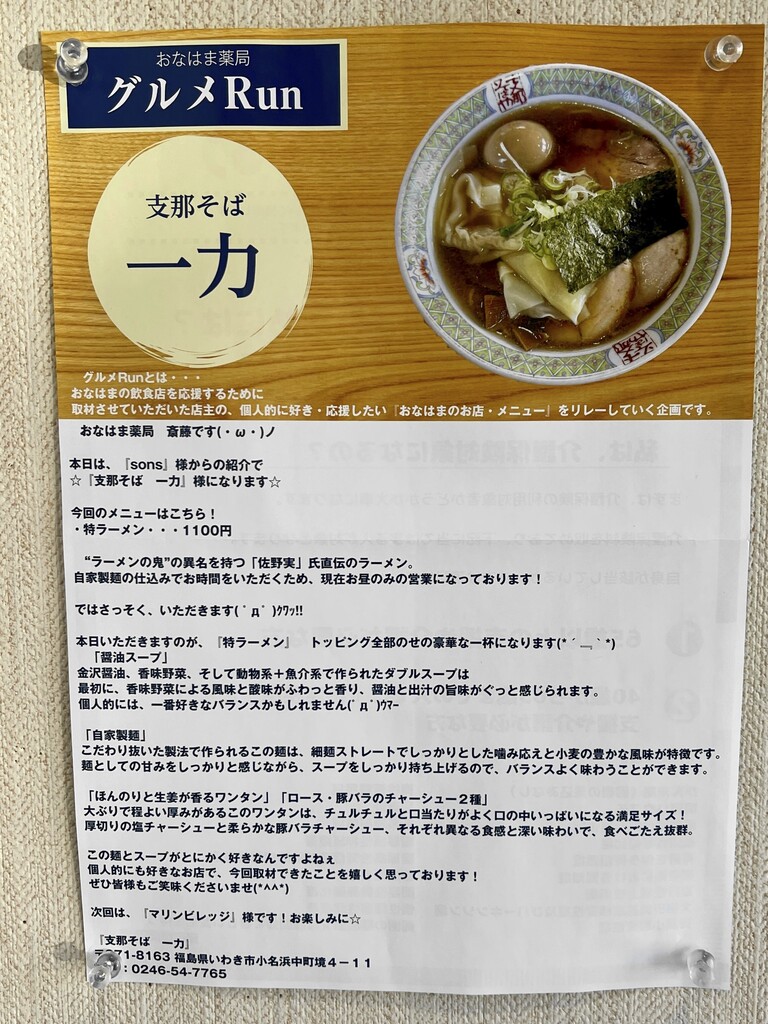 おなはま薬局
グルメRun
支那そば
一力
グルメRunとは・・・
おなはまの飲食店を応援するために
取材させていただいた店主の、個人的に好き・応援したい『おなはまのお店・メニュー』をリレーしていく企画です。
おなはま薬局　斎藤です(・ω・)ノ
本日は、『sons』様からの紹介で
☆『支那そば　一力』様になります☆
今回のメニューはこちら！
・特ラーメン・・・1100円
“ラーメンの鬼”の異名を持つ「佐野実」氏直伝のラーメン。
自家製麺の仕込みでお時間をいただくため、現在お昼のみの営業になっております！
ではさっそく、いただきます( ﾟдﾟ )ｸﾜｯ!!
本日いただきますのが、『特ラーメン』　トッピング全部のせの豪華な一杯になります(*´﹃｀*)
「醤油スープ」
金沢醤油、香味野菜、そして動物系＋魚介系で作られたダブルスープは
最初に、香味野菜による風味と酸味がふわっと香り、醤油と出汁の旨味がぐっと感じられます。
個人的には、一番好きなバランスかもしれません(ﾟдﾟ)ｳﾏｰ
「自家製麺」
こだわり抜いた製法で作られるこの麺は、細麺ストレートでしっかりとした噛み応えと小麦の豊かな風味が特徴です。
麺としての甘みをしっかりと感じながら、スープをしっかり持ち上げるので、バランスよく味わうことができます。
「ほんのりと生姜が香るワンタン」「ロース・豚バラのチャーシュー２種」
大ぶりで程よい厚みがあるこのワンタンは、チュルチュルと口当たりがよく口の中いっぱいになる満足サイズ！
厚切りの塩チャーシューと柔らかな豚バラチャーシュー、それぞれ異なる食感と深い味わいで、食べごたえ抜群。
この麺とスープがとにかく好きなんですよねぇ
個人的にも好きなお店で、今回取材できたことを嬉しく思っております！
ぜひ皆様もご笑味くださいませ(*^^*)
次回は、『マリンビレッジ』様です！お楽しみに☆
『支那そば　一力』
〒971-8163 福島県いわき市小名浜中町境４－１１
：0246-54-7765